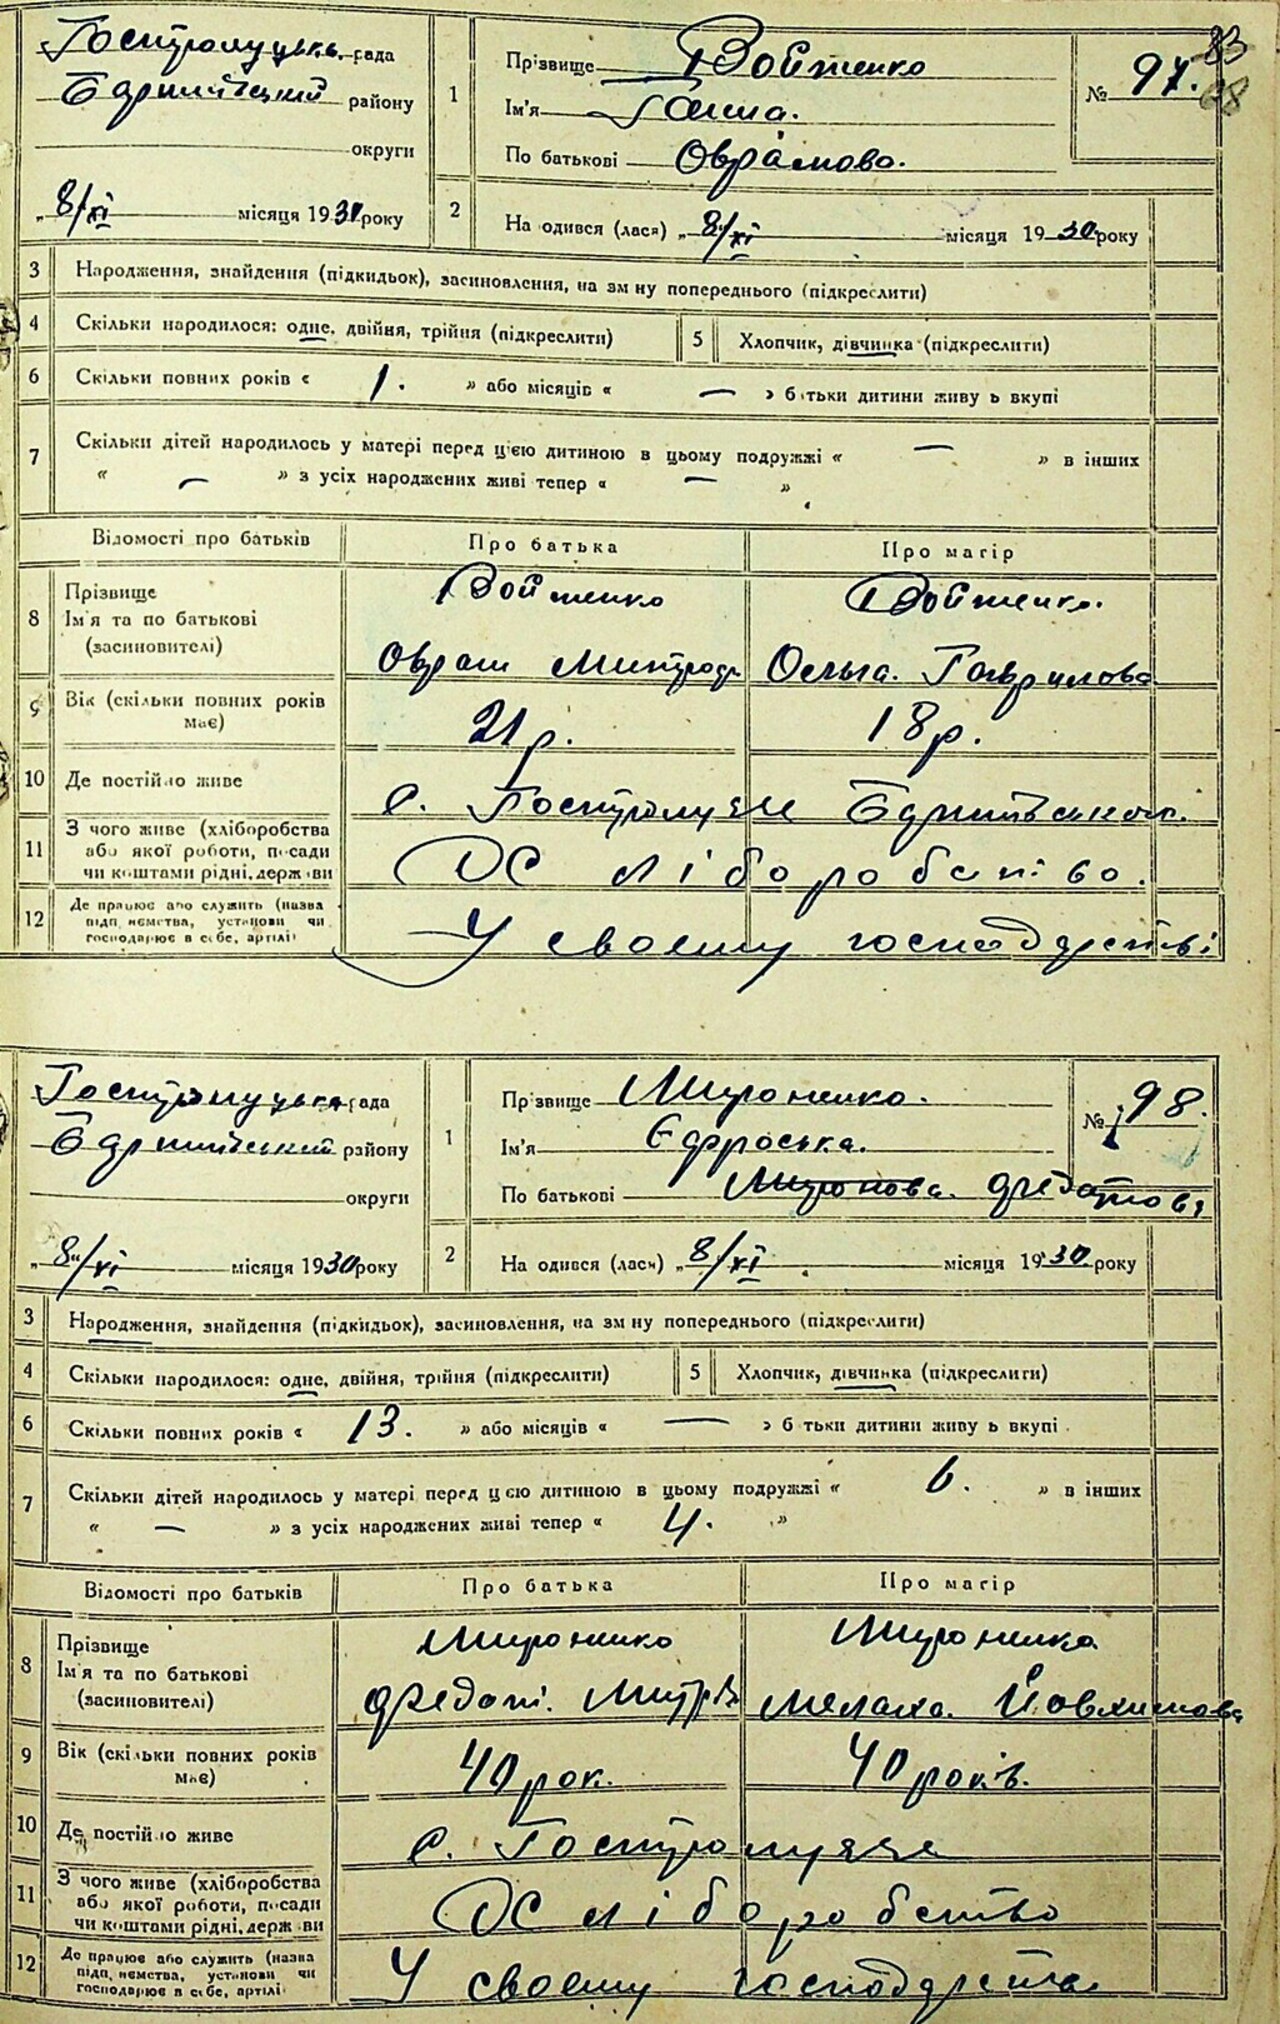 Гостролуцька рада
району
округи
„ 8/XI місяця 1930 року
1
Прізвище Войтенко
Ім'я Ганна.
По батькові Оврамова.
№ 97.
83
2
На одився (лася) „ 8/XI місяця 19 30 року
3 Народження, знайдення (підкидьок), засиновлення, на зм ну попереднього (підкреслити)
4 Скільки народилося: одне, двійня, трійня (підкреслити) 5 Хлопчик, дівчинка (підкреслити)
6 Скільки повних років « 1. » або місяців « — » б тьки дитини живу ь вкупі
7 Скільки дітей народилось у матері перед цією дитиною в цьому подружжі « — » в інших
« — » з усіх народжених живі тепер « — »
Відомості про батьків Про батька Про матір
8 Прізвище Войтенко Войтенко.
Ім'я та по батькові
(засиновителі) Оврам Ольга. Гаврилова
9 Вік (скільки повних років
має) 21 р. 18 р.
10 Де постійно живе с. Гостролуччє
11 З чого живе (хліборобства
або якої роботи, посади
чи коштами рідні, держ ви Хліборобство.
12 Де працює або служить (назва
підп, ємства, установи чи
господарює в себе, артілі) У своєму господарстві
Гостролуцька рада
району
округи
„ 8/XI місяця 1930 року
1
Пр звище Мироненко.
Ім'я Єфроська.
По батькові Миронова. Федотова
№ 98.
2
На одився (лася) „ 8/XI місяця 19 30 року
3 Народження, знайдення (підкидьок), засиновлення, на зм ну попереднього (підкреслити)
4 Скільки народилося: одне, двійня, трійня (підкреслити) 5 Хлопчик, дівчинка (підкреслити)
6 Скільки повних років « 13. » або місяців « — » б тьки дитини живу ь вкупі
7 Скільки дітей народилось у матері перед цією дитиною в цьому подружжі « 6. » в інших
« — » з усіх народжених живі тепер « 4. »
Відомості про батьків Про батька Про матір
8 Прізвище Мироненко Мироненко
Ім'я та по батькові
(засиновителі) Федот. Меланя.
9 Вік (скільки повних років
має) 40 рок. 40 років.
10 Де постійно живе с. Гостролуччє
11 З чого живе (хліборобства
або якої роботи, посади
чи коштами рідні, держ ви Хліборобство
12 Де працює або служить (назва
підп, ємства, установи чи
господарює в себе, артілі У своєму господарстві